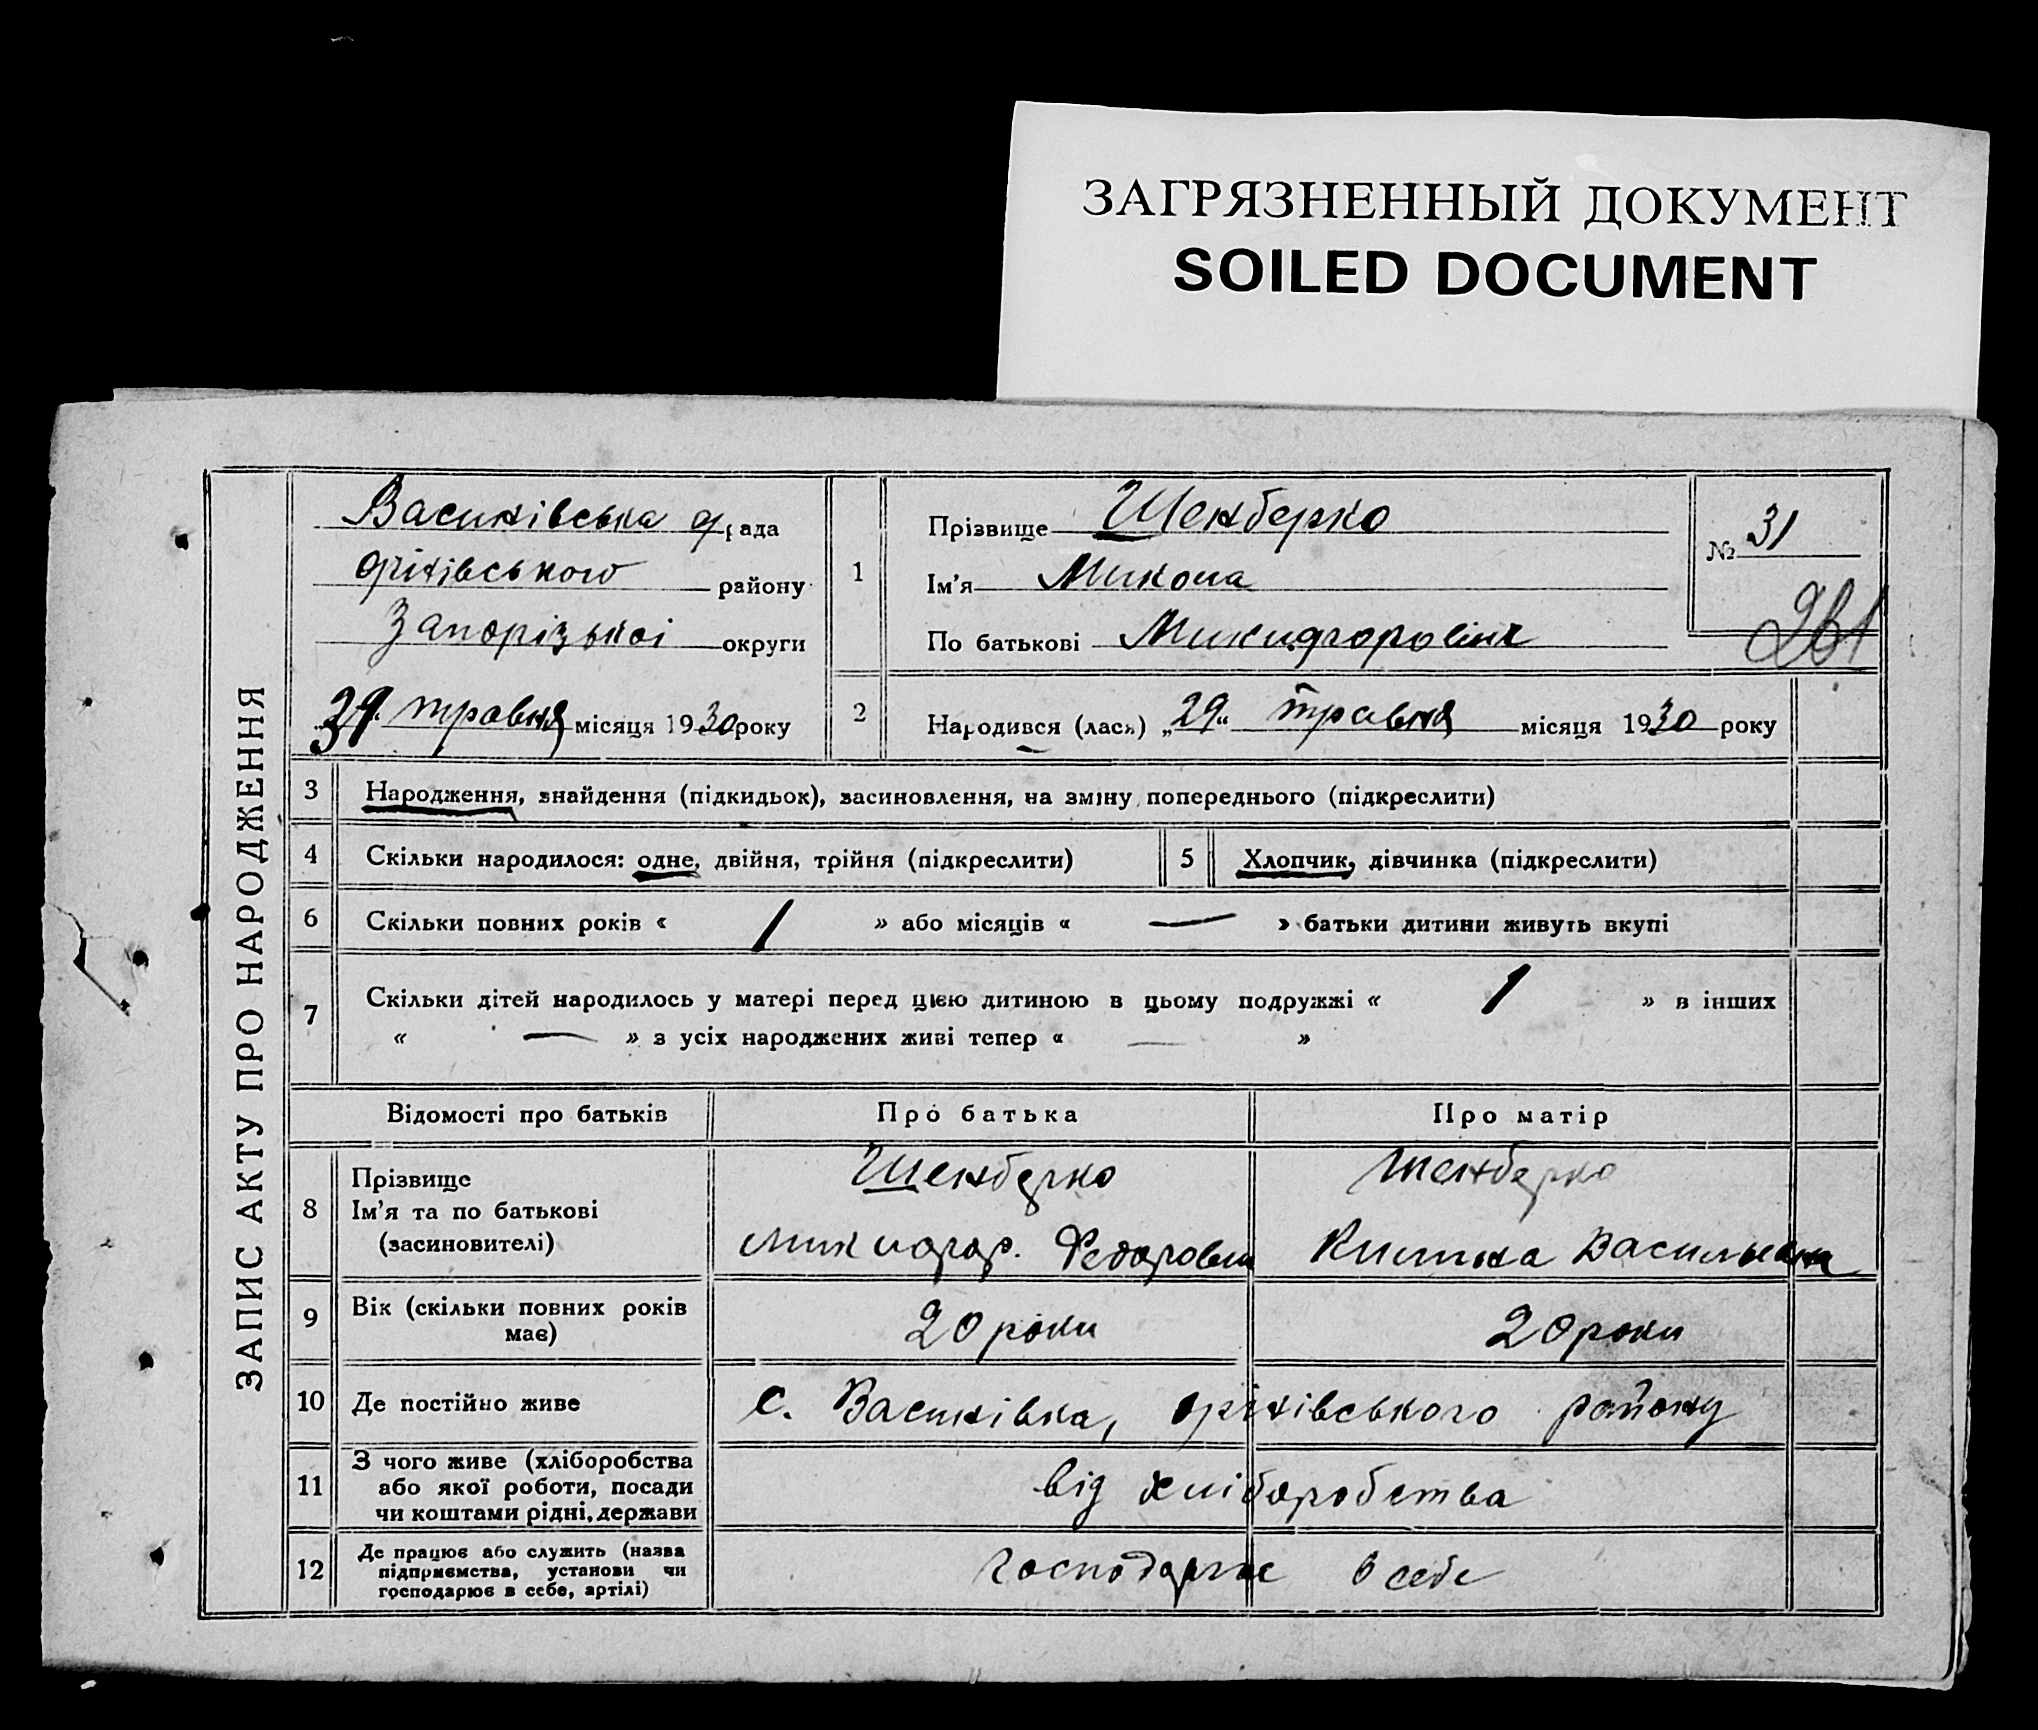 ЗАГРЯЗНЕННЫЙ ДОКУМЕНТ
SOILED DOCUMENT
ЗАПИС АКТУ ПРО НАРОДЖЕННЯ
Василівська с/рада
Оріхівського району
Запорізької округи
травня місяця 1930 року
1
Прізвище Шенберко
Ім'я Микола
По батькові Микифорович
№ 31
261
2
Народився (лась) „29“ травня місяця 1930 року
3 Народження, знайдення (підкидьок), засиновлення, на зміну попереднього (підкреслити)
4 Скільки народилося: одне, двійня, трійня (підкреслити)
5 Хлопчик, дівчинка (підкреслити)
6 Скільки повних років « 1 » або місяців « — » батьки дитини живуть вкупі
7 Скільки дітей народилось у матері перед цією дитиною в цьому подружжі « 1 » в інших
« — » з усіх народжених живі тепер « — »
Відомості про батьків Про батька Про матір
8 Прізвище Ім'я та по батькові (засновителі)
Шенберко Шенберко
Микифор. Федорович Килина Васильевна
9 Вік (скільки повних років має) 20 роки 20 роки
10 Де постійно живе с. Василівка, Оріхівського району
11 З чого живе (хліборобства або якої роботи, посади чи коштами рідні, держави від хліборобства
12 Де працює або служить (назва підприємства, установи чи господарює в себе, артілі) господарює в себе